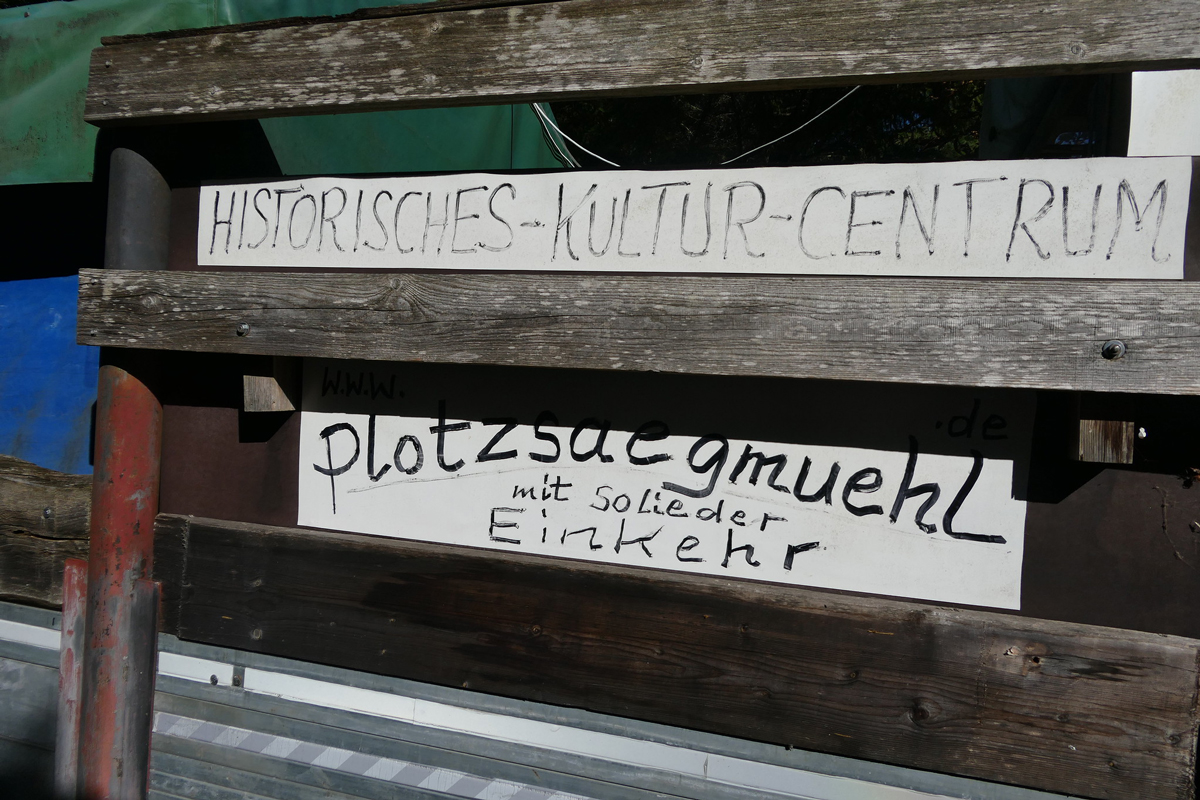 HISTORISCHES-KULTUR-CENTRUM
w.w.w. .de
plotzsaegmuehl
mit Solieder
Einkehr